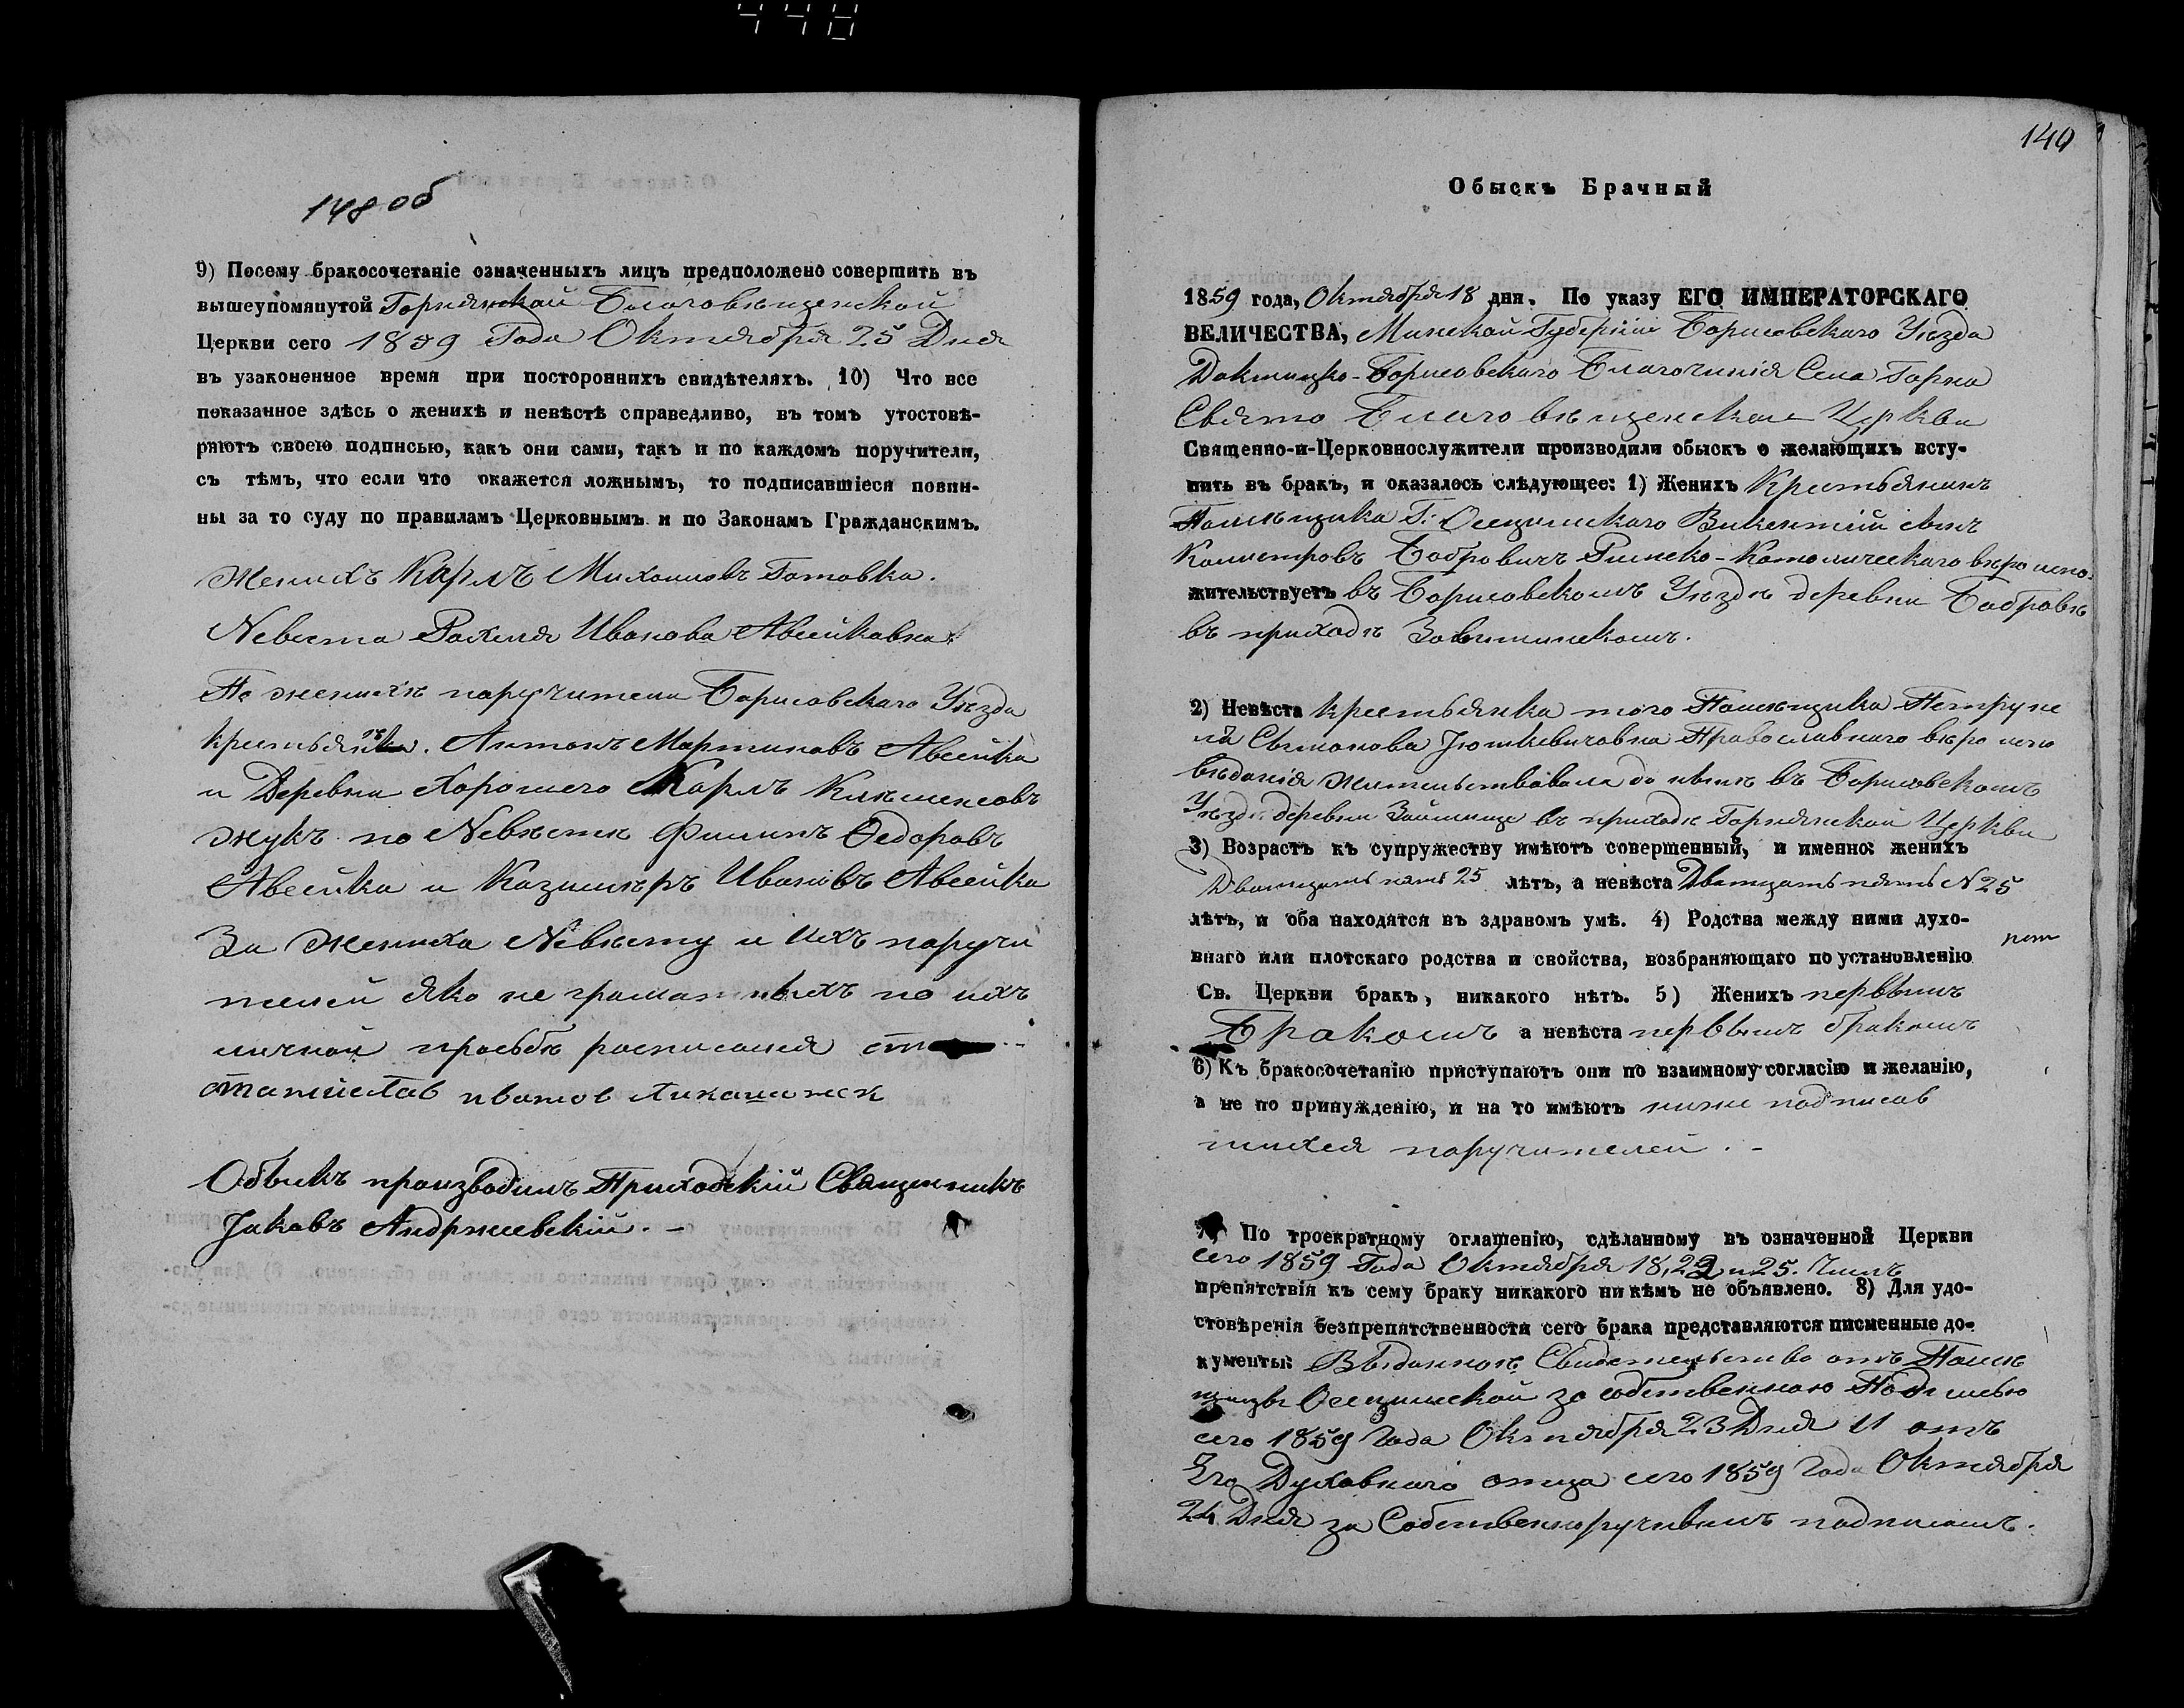 448
148 об
9) Посему бракосочетаніе означенныхъ лицъ предположено совершить въ
вышеупомянутой Горнянской Благовѣщенской
Церкви сего 1859 Года Октября 25 Дня
въ узаконенное время при постороннихъ свидѣтеляхъ. 10) Что все
показанное здѣсь о женихѣ и невѣстѣ справедливо, въ томъ утостовѣ-
ряютъ своею подписью, какъ они сами, такъ и по каждомъ поручители,
съ тѣмъ, что если что окажется ложнымъ, то подписавшіеся повин-
ны за то суду по правиламъ Церковнымъ и по Законамъ Гражданскимъ.
Женихъ Карлъ Михаиловъ Готовка.
Невеста Рахиля Иванова Авсейкавна
По женихѣ поручители Борисовскаго Уѣзда
крестьянѣ. Антонъ Мартиновъ Авсейка
и Деревни Хорошего Карлъ Клеменсовъ
Жукъ по Невѣстѣ Филипъ Ѳедоровъ
Авсейка и Казимѣръ Ивановъ Авсейка
За Жениха Невѣсту и ихъ поручи
телей яко неграматныхъ по ихъ
личной прозьбѣ росписался
станиславъ ивановъ
Обыскъ производилъ Приходскій Священникъ
Іаковъ Андржеевскій. -
149
Обыскъ Брачный
1859 года, Октября 18 дня. По указу ЕГО ИМПЕРАТОРСКАГО
ВЕЛИЧЕСТВА, Минской Губерніи Борисовскаго Уѣзда
Докшицко-Борисовскаго Благочинія Села Горна
Свято Благовѣщенской Церкви
Священно-и-Церковнослужители производили обыскъ о желающихъ всту-
пить въ бракъ, и оказалось слѣдующее: 1) Женихъ Крестьянинъ
Помѣщика Г. Осецимскаго Викентій сынъ
Бобровичъ Римско-Католическаго вѣро испо.
жительствуетъ въ Борисовскомъ Уѣздѣ деревни Бобровѣ
въ приходѣ
2) Невѣста крестьянка того Помѣщика Петруне
ля Сымонова Юшкевичовна Православнаго вѣро испо
вѣданія жительствовала до нынѣ въ Борисовскомъ
Уѣздѣ деревни Займище въ приходѣ Горнянской Церкви
3) Возрастъ къ супружеству имѣютъ совершенный, и именно: женихъ
Дватцать пять 25 лѣтъ, а невѣста Двятцать пять N 25
лѣтъ, и оба находятся въ здравомъ умѣ. 4) Родства между ними духо-
внаго или плотскаго родства и свойства, возбраняющаго по установленію
Св. Церкви бракъ, никакого нѣтъ. 5) Женихъ первымъ
Бракомъ а невѣста первымъ бракомъ
6) Къ бракосочетанію приступаютъ они по взаимному согласію и желанію,
а не по принужденію, и на то имѣютъ ниже подписав
шихся поручителей. -
7) По троекратному оглашенію, сдѣланному въ означенной Церкви
сего 1859 Года Октября 18, 23 и 25. Числъ
препятствія къ сему браку никакого ни кѣмъ не объявлено. 8) Для удо-
стовѣренія безпрепятственности сего брака представляются писменные до-
кументы: Выданное Свидетельство отъ Помѣ
щицы Осецимской за собственною Подписью
сего 1859 Года Октября 23 Дня И отъ
Его Духовнаго отца сего 1859 Года Октября
24 Дня за Собственноручнымъ подписомъ.